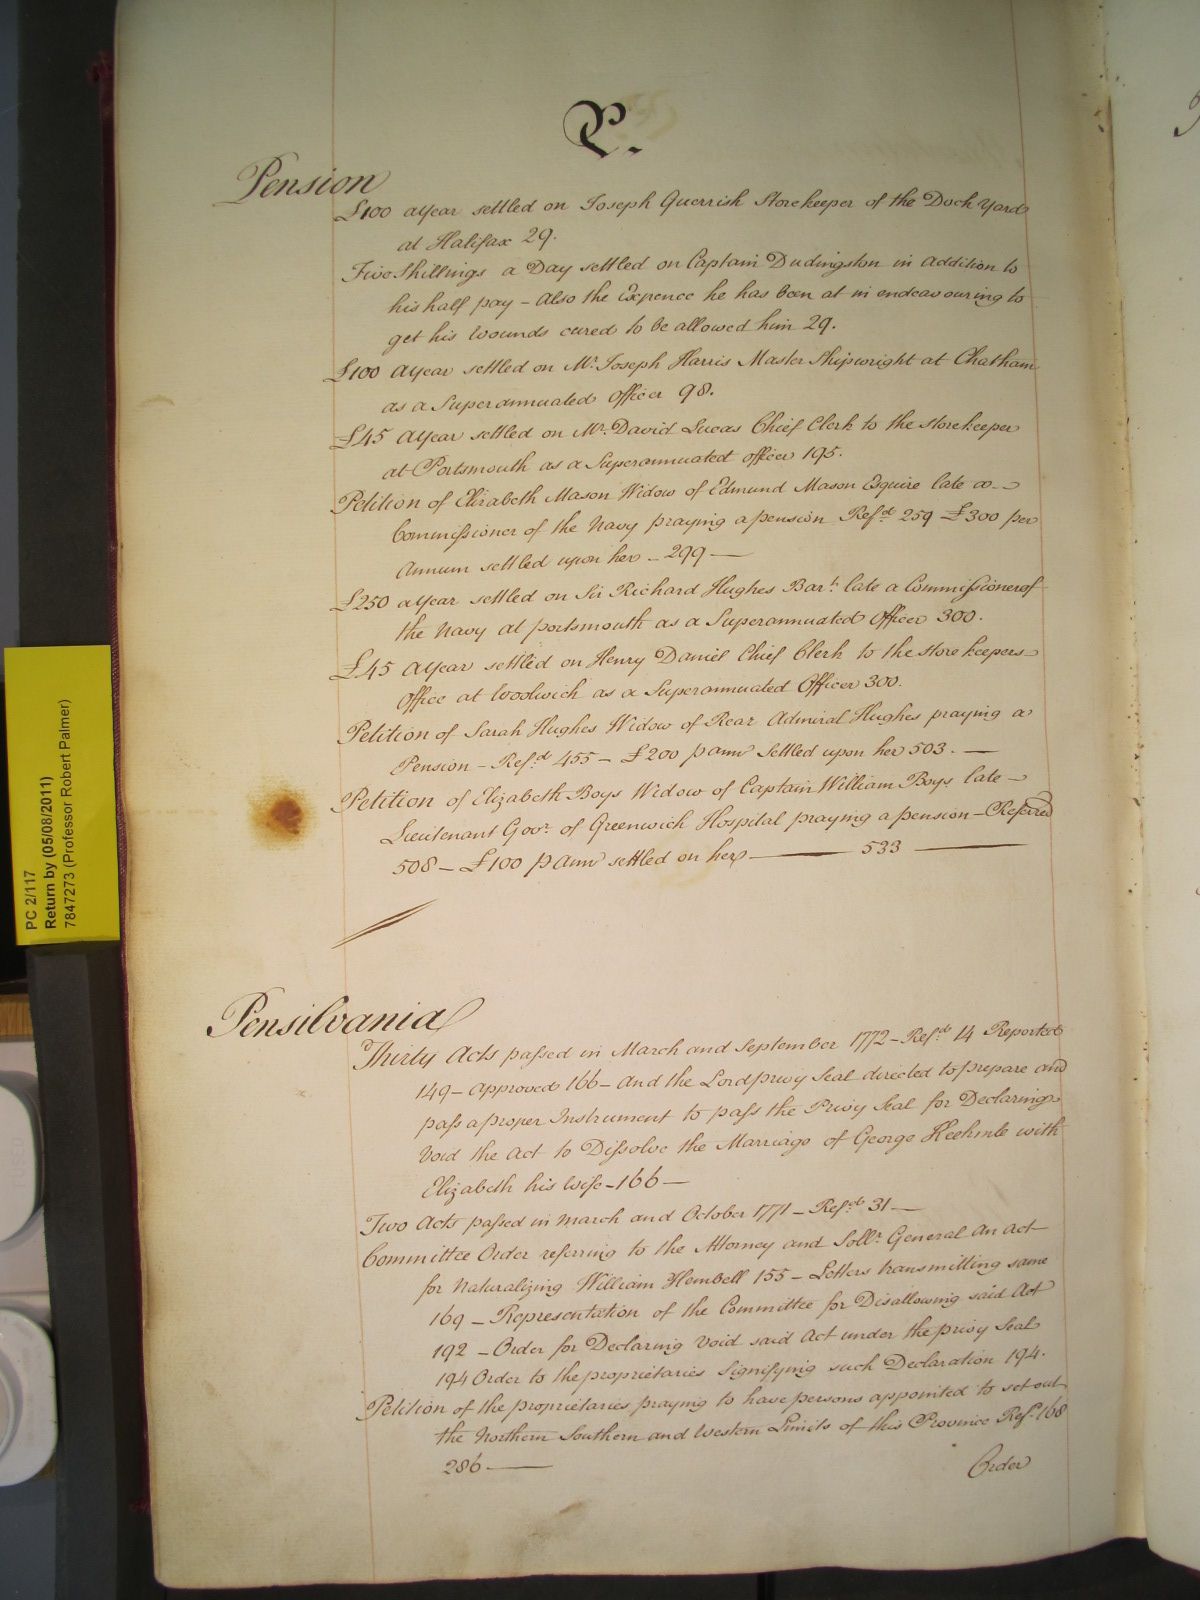 P.
Pension
£100 a year settled on Joseph Guerrish Storekeeper of the Dock Yard
at Halifax 29.
Five Shillings a Day settled on Captain Dudingston in Addition to
his half pay - Also the Expence he has been at in endeavouring to
get his wounds cured to be allowed him 29.
£100 a year settled on Mr. Joseph Harris Master Shipwright at Chatham
as a Superannuated Officer 98.
£45 a year settled on Mr. David Lucas Chief Clerk to the Storekeeper
at Portsmouth as a Superannuated officer 195.
Petition of Elizabeth Mason Widow of Edmund Mason Esquire late a
Commissioner of the Navy praying a pension Refd. 259 £300 per
Annum settled upon her - 299 —
£250 a year settled on Sir Richard Hughes Bart. late a Commissioner of
the Navy at portsmouth as a Superannuated Officer 300.
£45 a year settled on Henry Daniel Chief Clerk to the Store keepers
Office at Woolwich as a Superannuated Officer 300.
Petition of Sarah Hughes Widow of Rear Admiral Hughes praying a
Pension - Refd. 455 - £200 p ann settled upon her 503. —
Petition of Elizabeth Boys Widow of Captain William Boys late
Lieutenant Govr. of Greenwich Hospital praying a pension - Referred
508 - £100 p Ann settled on her — 533 —
Pensilvania
Thirty Acts passed in March and September 1772 - Refd. 14 Reported
149 - approved 166 - And the Lord privy Seal directed to prepare and
pass a proper Instrument to pass the Privy Seal for Declaring
Void the Act to Dissolve the Marriage of George Keehmle with
Elizabeth his Wife - 166 —
Two Acts passed in March and October 1771 - Refd. 31 —
Committee Order referring to the Attorney and Sollr. General An Act
for Naturalizing William Hembell 155 - Letters transmitting same
169 - Representation of the Committee for Disallowing said Act
192 - Order for Declaring Void said Act under the privy Seal
194 Order to the proprietaries Signifying such Declaration 194.
Petition of the proprietaries praying to have persons appointed to set out
the Northern Southern and Western Limits of this Province Refd. 168
286 —
Order
PC 2/117
Return by (05/08/2011)
7847273 (Professor Robert Palmer)